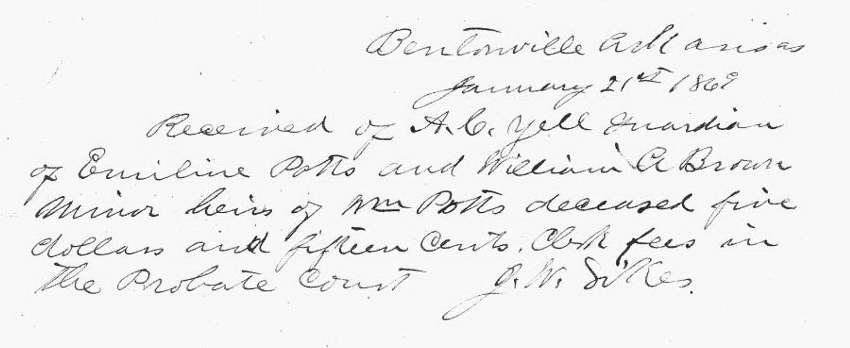 Bentonville Arkansas
January 21st 1869
Received of A. C. Yell guardian
of Emiline Potts and William A Brown
Minor heirs of Wm Potts deceased five
dollars and fifteen Cents. Clerk fees in
the Probate Court J. W. Sikes.